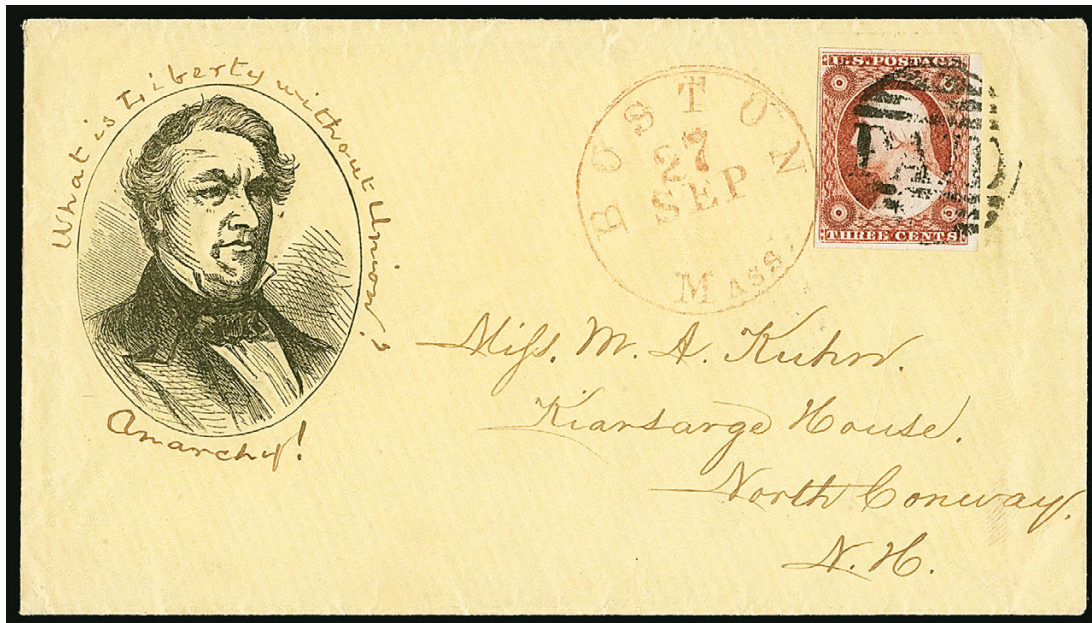 What is Liberty without Union?
Anarchy!
BOSTON
27
SEP
MASS.
U.S. POSTAGE
PAID
THREE CENTS
Miss. M. A. Kuhn.
Kiarsarge House.
North Conway,
N. H.